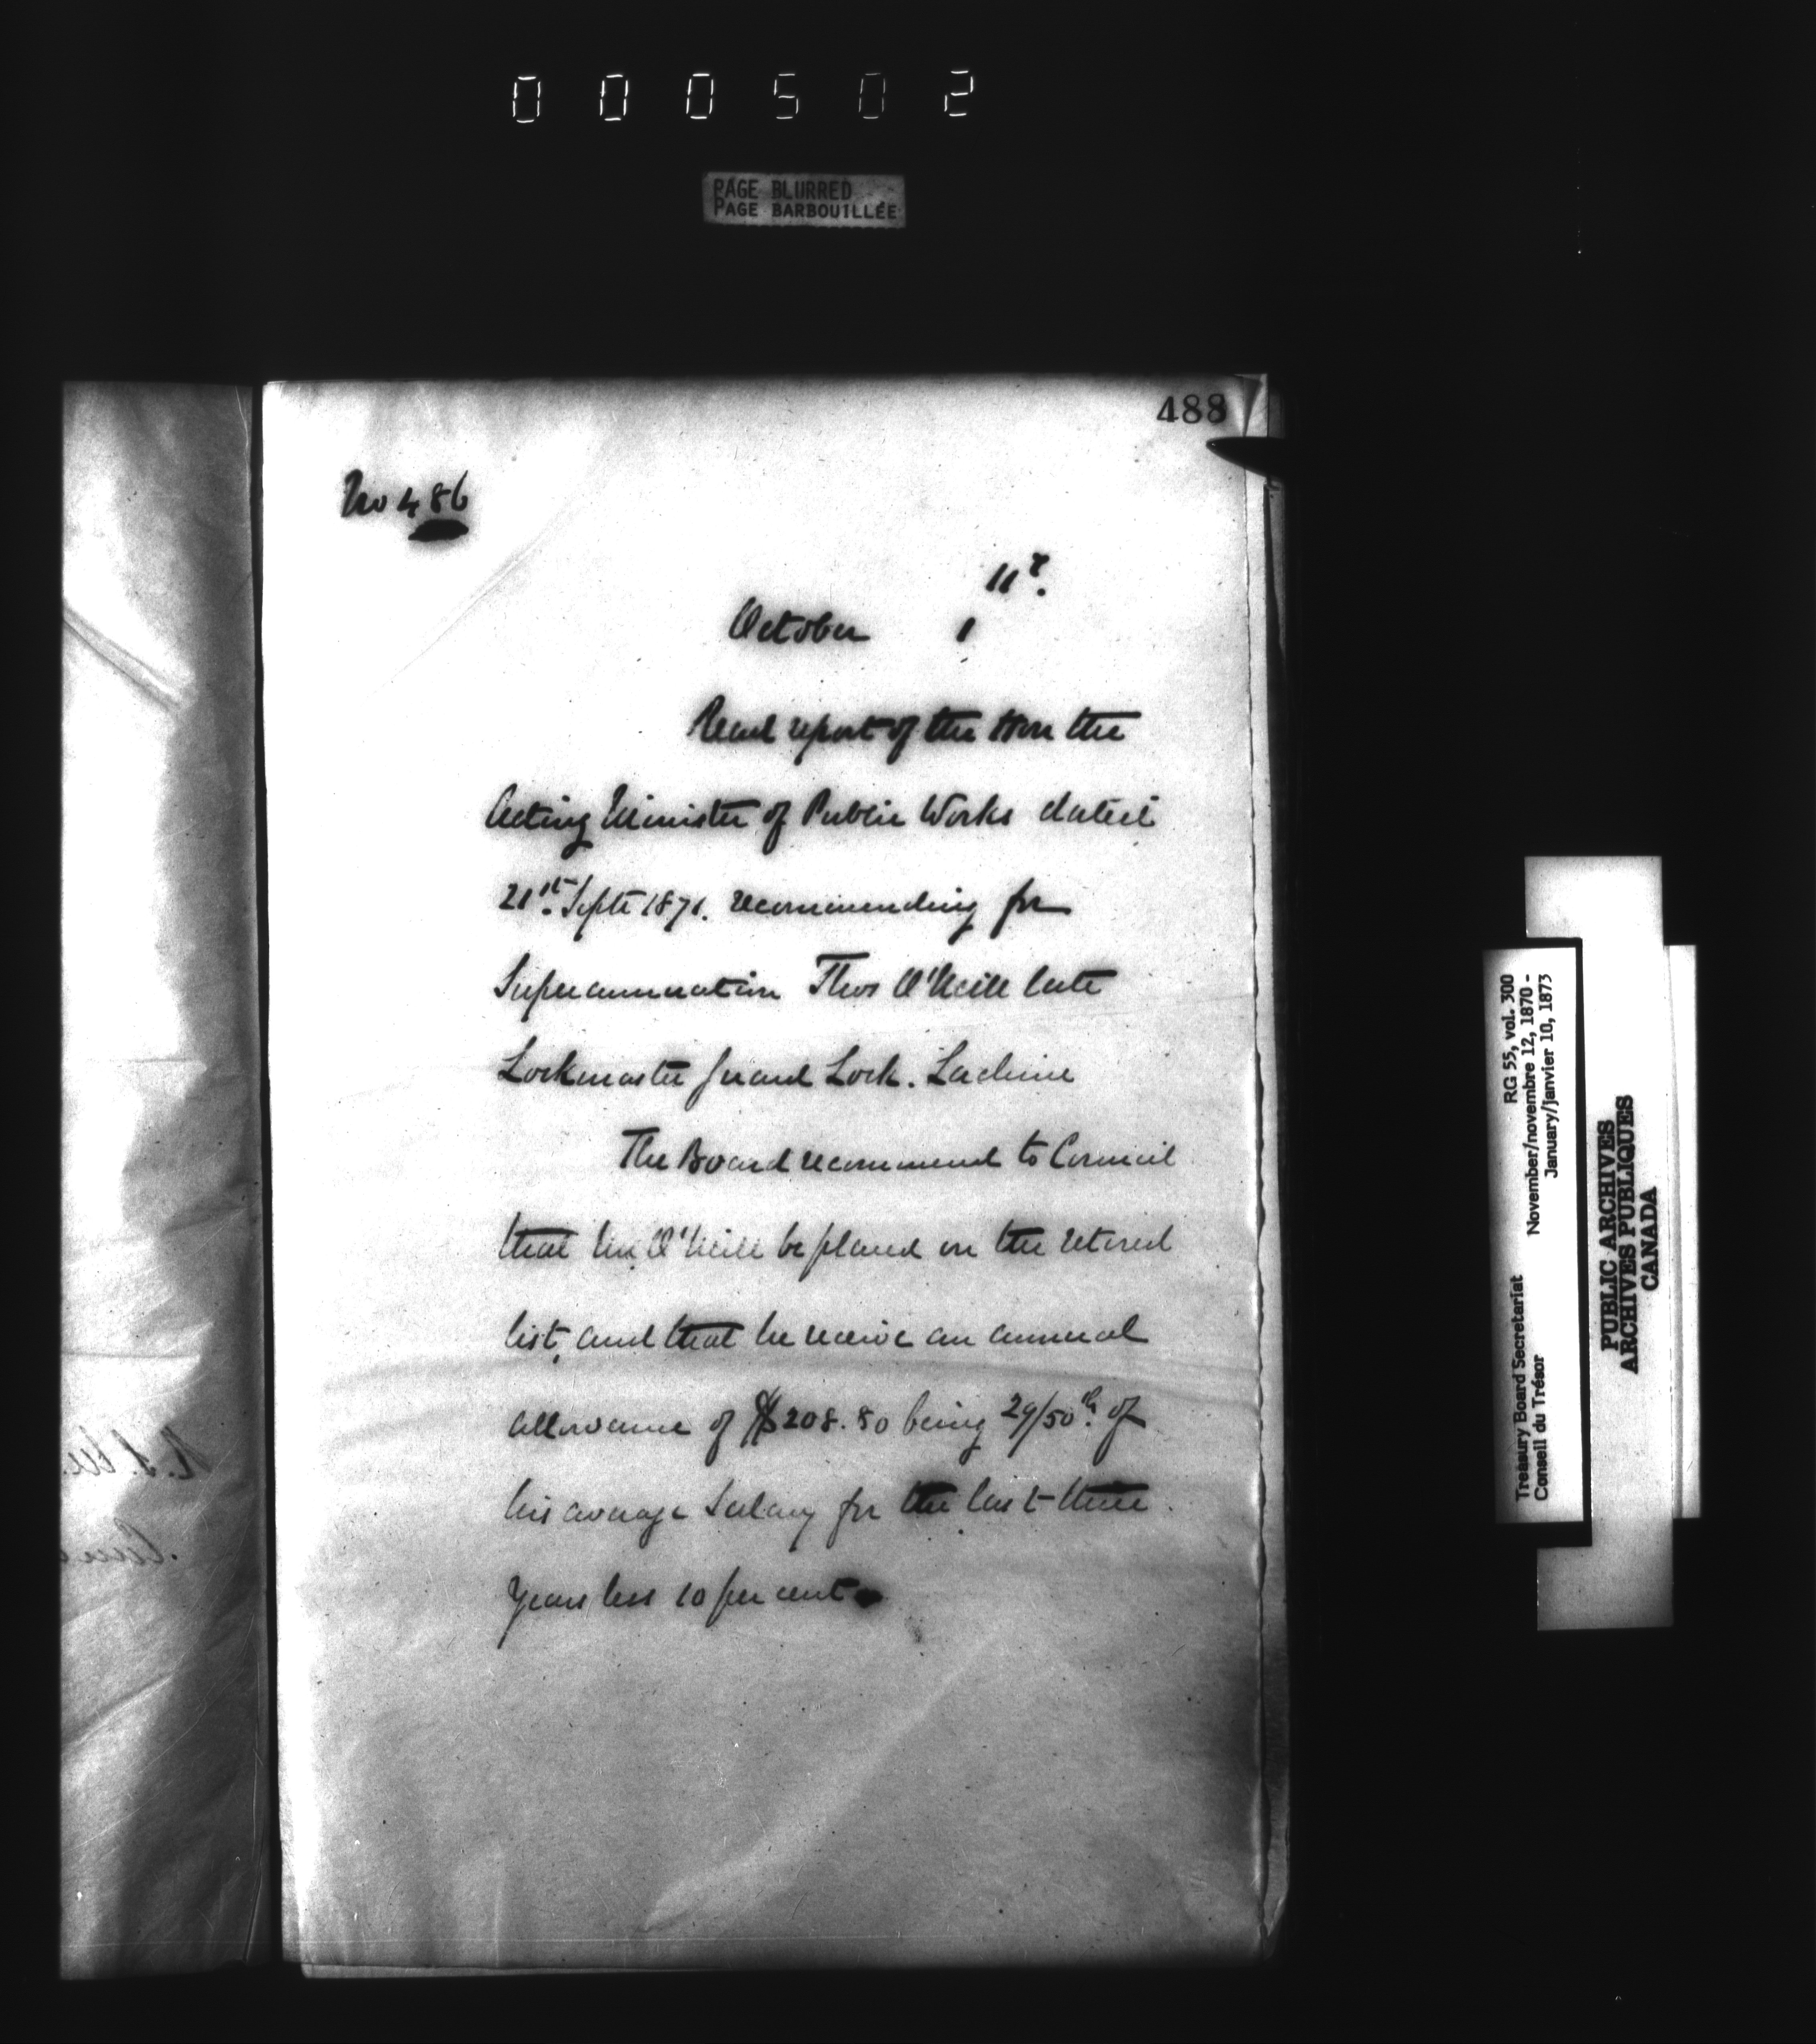 000502
PAGE BLURRED
PAGE BARBOUILLÉE
488
No 486
11th.
October 1
Read report of the Hon the
Acting Minister of Public Works dated
21st. Septr 1871. recommending for
Superannuation Thos O'Neill late
Lockmaster Guard Lock. Lachine
The Board recommend to Council
that Mr. O'Neill be placed on the retired
list, and that he receive an annual
allowance of $208.80 being 29/50th. of
his average Salary for the last three
Years less 10 per cent
RG 55, vol. 300
Treasury Board Secretariat November/novembre 12, 1870 -
Conseil du Trésor January/janvier 10, 1873
PUBLIC ARCHIVES
ARCHIVES PUBLIQUES
CANADA